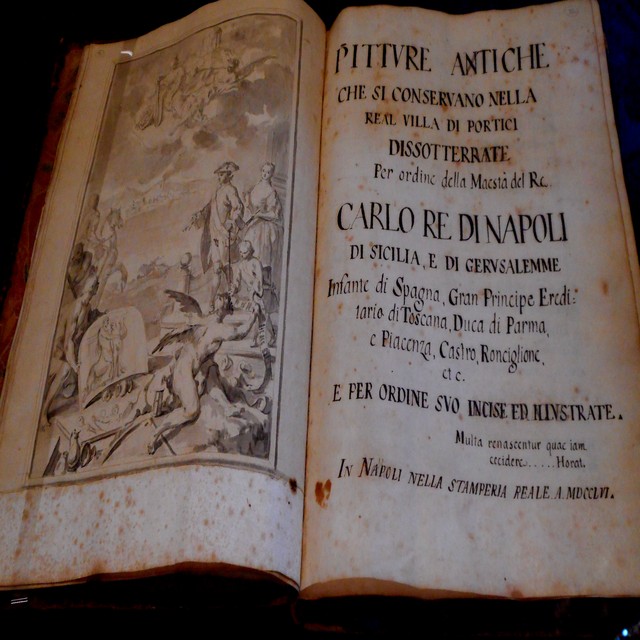 PITTVRE ANTICHE
CHE SI CONSERVANO NELLA
REAL VILLA DI PORTICI
DISSOTTERRATE
Per ordine della Maestà del Re.
CARLO RE DI NAPOLI
DI SICILIA, E DI GERVSALEMME
Infante di Spagna, Gran Principe Eredi:
tario di Toscana, Duca di Parma,
e Piacenza, Castro, Ronciglione,
etc.
E PER ORDINE SVO INCISE ED ILLVSTRATE.
Multa renascentur quae iam
cecidere......Horat.
IN NAPOLI NELLA STAMPERIA REALE A.MDCCLVI.